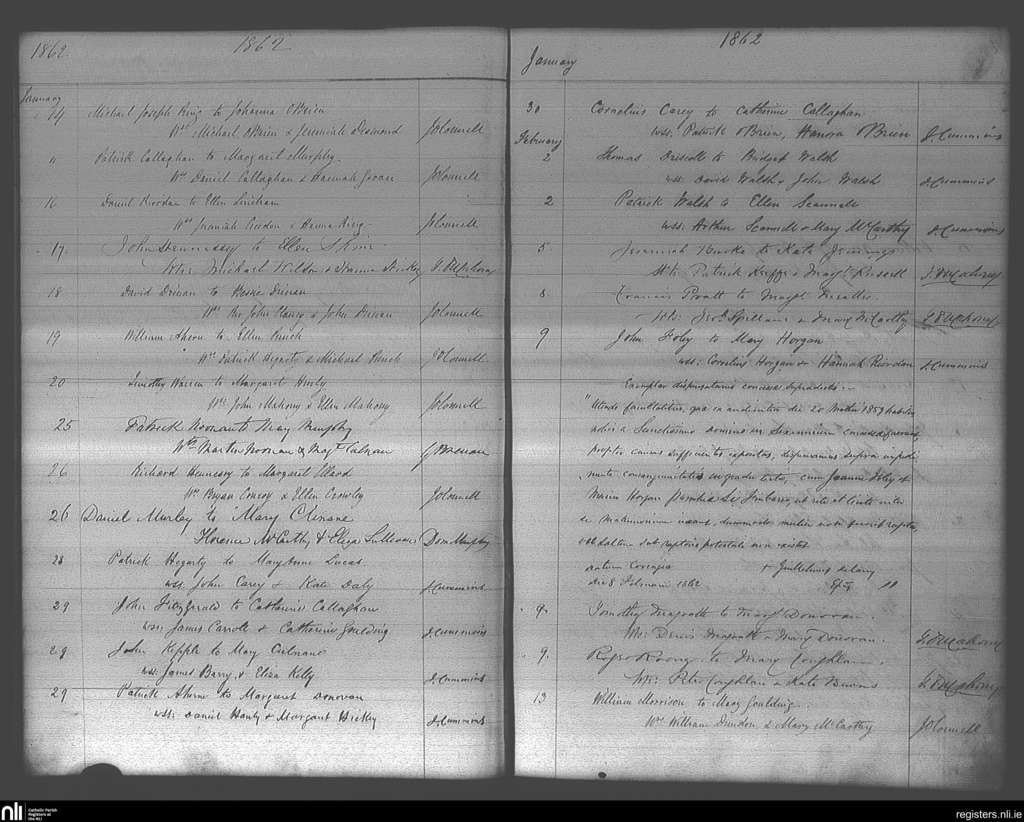 1862
1862
January
14 Michael Joseph King to Johanna OBrien
Wts Michael OBrien & Jeremiah Desmond JOConnell
" Patrick Callaghan to Margaret Murphy
Wts Daniel Callaghan & Hannah JOConnell
16 Daniel Riordan to Ellen Linehan
Wts Jeremiah Creedon & Hanna King JOConnell
17. John Hennessy to Ellen
Wts: Michael & Hanna
18 David Dinan to Bessie Dinan
Wts Rev John Clancy & John Dinan JOConnell
19 William Ahern to Ellen Punch
Wts Patrick Hegarty & Michael Punch JOConnell
20 Timothy Warren to Margaret Hurly
Wts John Mahony & Ellen Mahony JOConnell
25 Patrick Noonan to May Murphy
Wts Martin Noonan & Magt
26 Richard Hennessy to Margaret Ellard
Wts Bryan Conroy & Ellen Crowley JOConnell
26 Daniel Murley to Mary Clenane
Florence McCarthy & Eliza Sullivan Dom Murphy
28 Patrick Hegarty to Mary Anne Lucas
wss. John Carey & Kate Daly J. Cummins
29 John Fitzgerald to Catherine Callaghan
wss: James Carroll & Catherine Goulding J. Cummins
29 John Kepple to Mary Culnane
wss: James Barry & Eliza Kelly J. Cummins
29 Patrick Aherne to Margaret Donovan
wss: Daniel Hanly & Margaret Hickey J. Cummins
1862
January
30 Cornelius Carey to Catherine Callaghan
wss. Patrick OBrien, Hanora OBrien J. Cummins
February
2 Thomas Driscoll to Bridget Walsh
wss David Walsh & John Walsh J. Cummins
2 Patrick Walsh to Ellen Scannell
wss. Arthur Scannell & Mary McCarthy J. Cummins
5 Jeremiah to Kate Jennings
Wts Patrick Keeffe & Margt Russell
8 Francis Pratt to Margt
Wts: Spillane & Mary McCarthy
9 John Foley to Mary Horgan
wss. Cornelius Horgan & Hannah Riordan J. Cummins
Exemplar dispensationis concessae supradictis.
" Utendo facultatibus, quas in audientia die 20 1859 habitis
nobis a Sanctissimo Domino in concessas
propter causas sufficientes expositas, dispensamus supra impedi
mento consanguinitatis in gradu tertio, cum Joanne Foley &
Maria Horgan ut rite et licite inter
se matrimonium ineant, dummodo mulier non fuerit rapta,
vel saltem sub raptoris potestate non existat
datum Corcagia + Gulielmus Delany
die 8 Februarii 1862 "
9. Timothy Magrath to Margt Donovan.
Wts: Denis Magrath & Mary Donovan.
9. Roger to Mary Coughlan.
Wts: Peter Coughlan & Kate
13 William Morrison to Mary Goulding.
Wts William & Mary McCarthy JOConnell
nli
Catholic Parish
Registers at
the NLI
registers.nli.ie